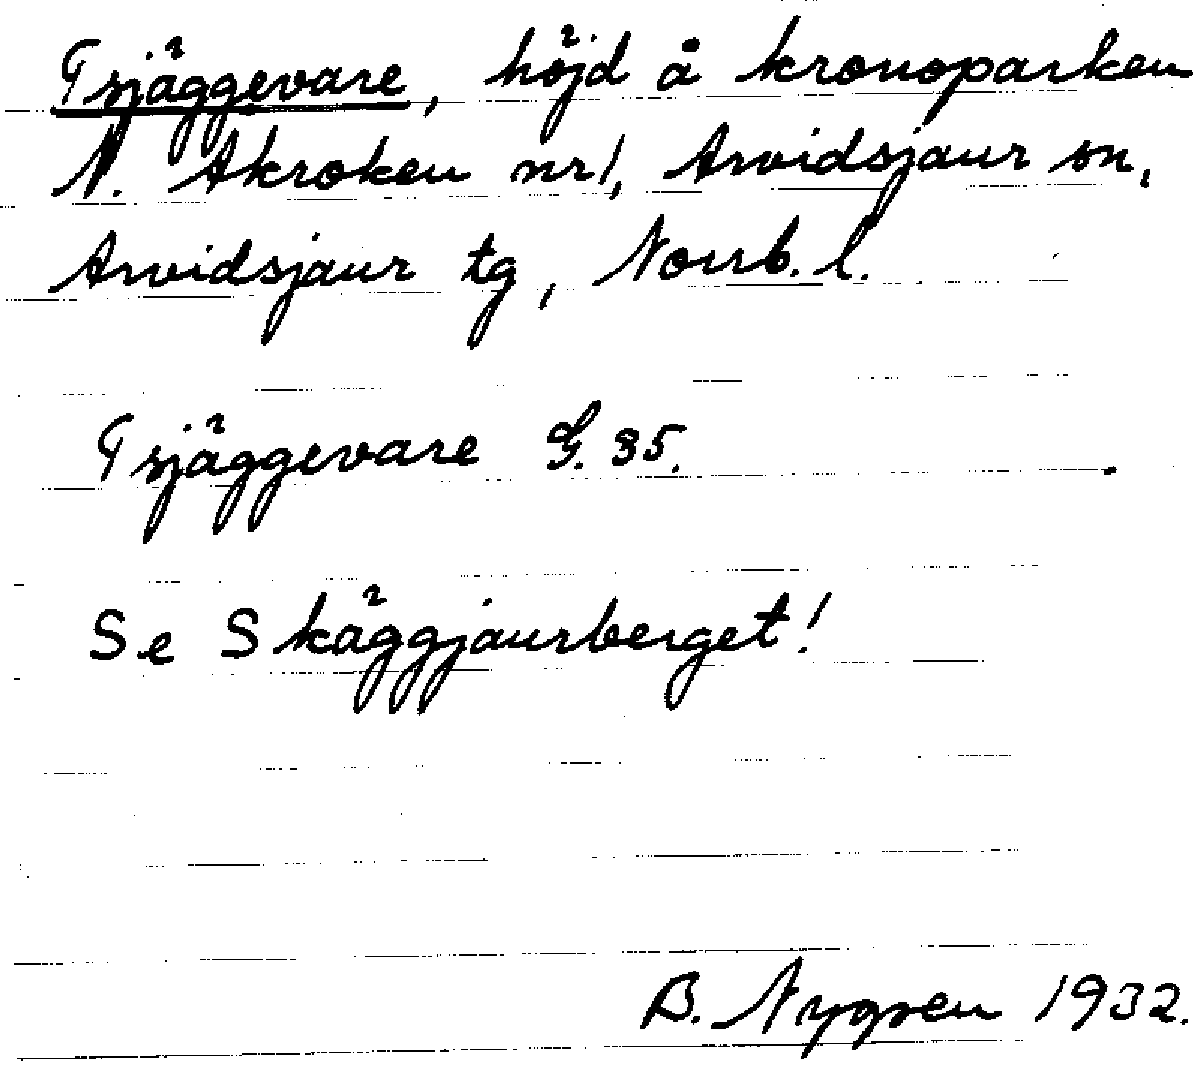 Tsjäggevare, höjd å kronoparken
N. Akroken nr 1, Arvidsjaur sn,
Arvidsjaur tg, Norrb. l.
Tsjäggevare G. 35.
Se Skäggjaurberget!
B. Nygren 1932.